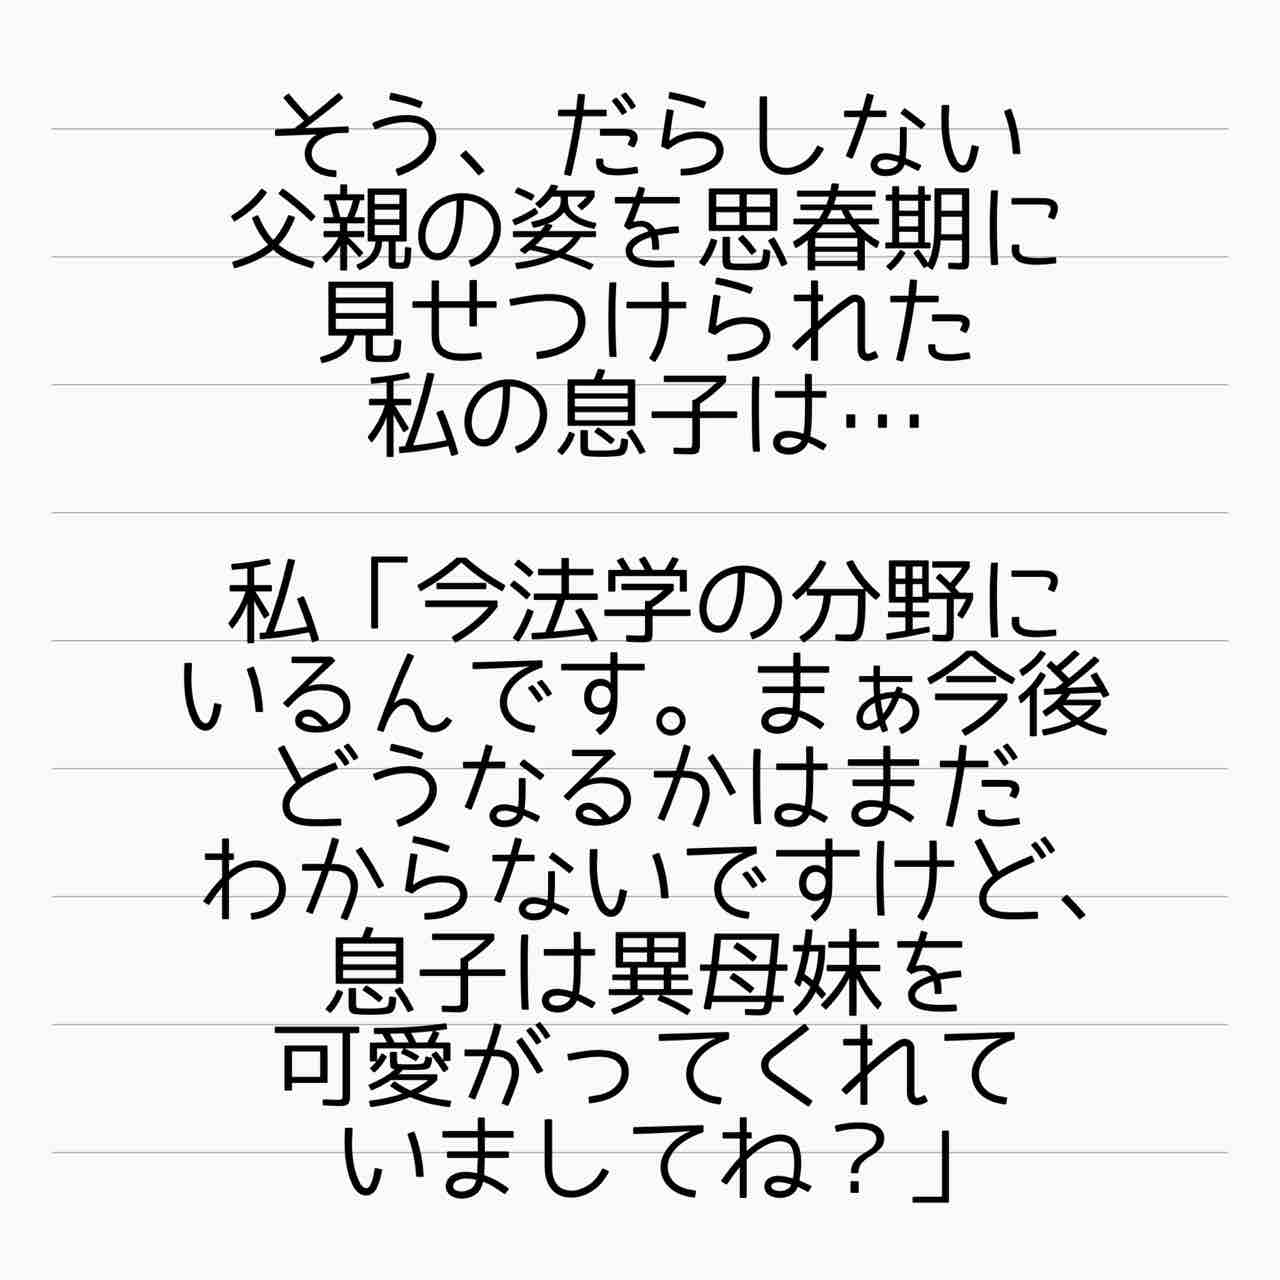 そう、だらしない
父親の姿を思春期に
見せつけられた
私の息子は…
私「今法学の分野に
いるんです。まぁ今後
どうなるかはまだ
わからないですけど、
息子は異母妹を
可愛がってくれて
いましてね？」